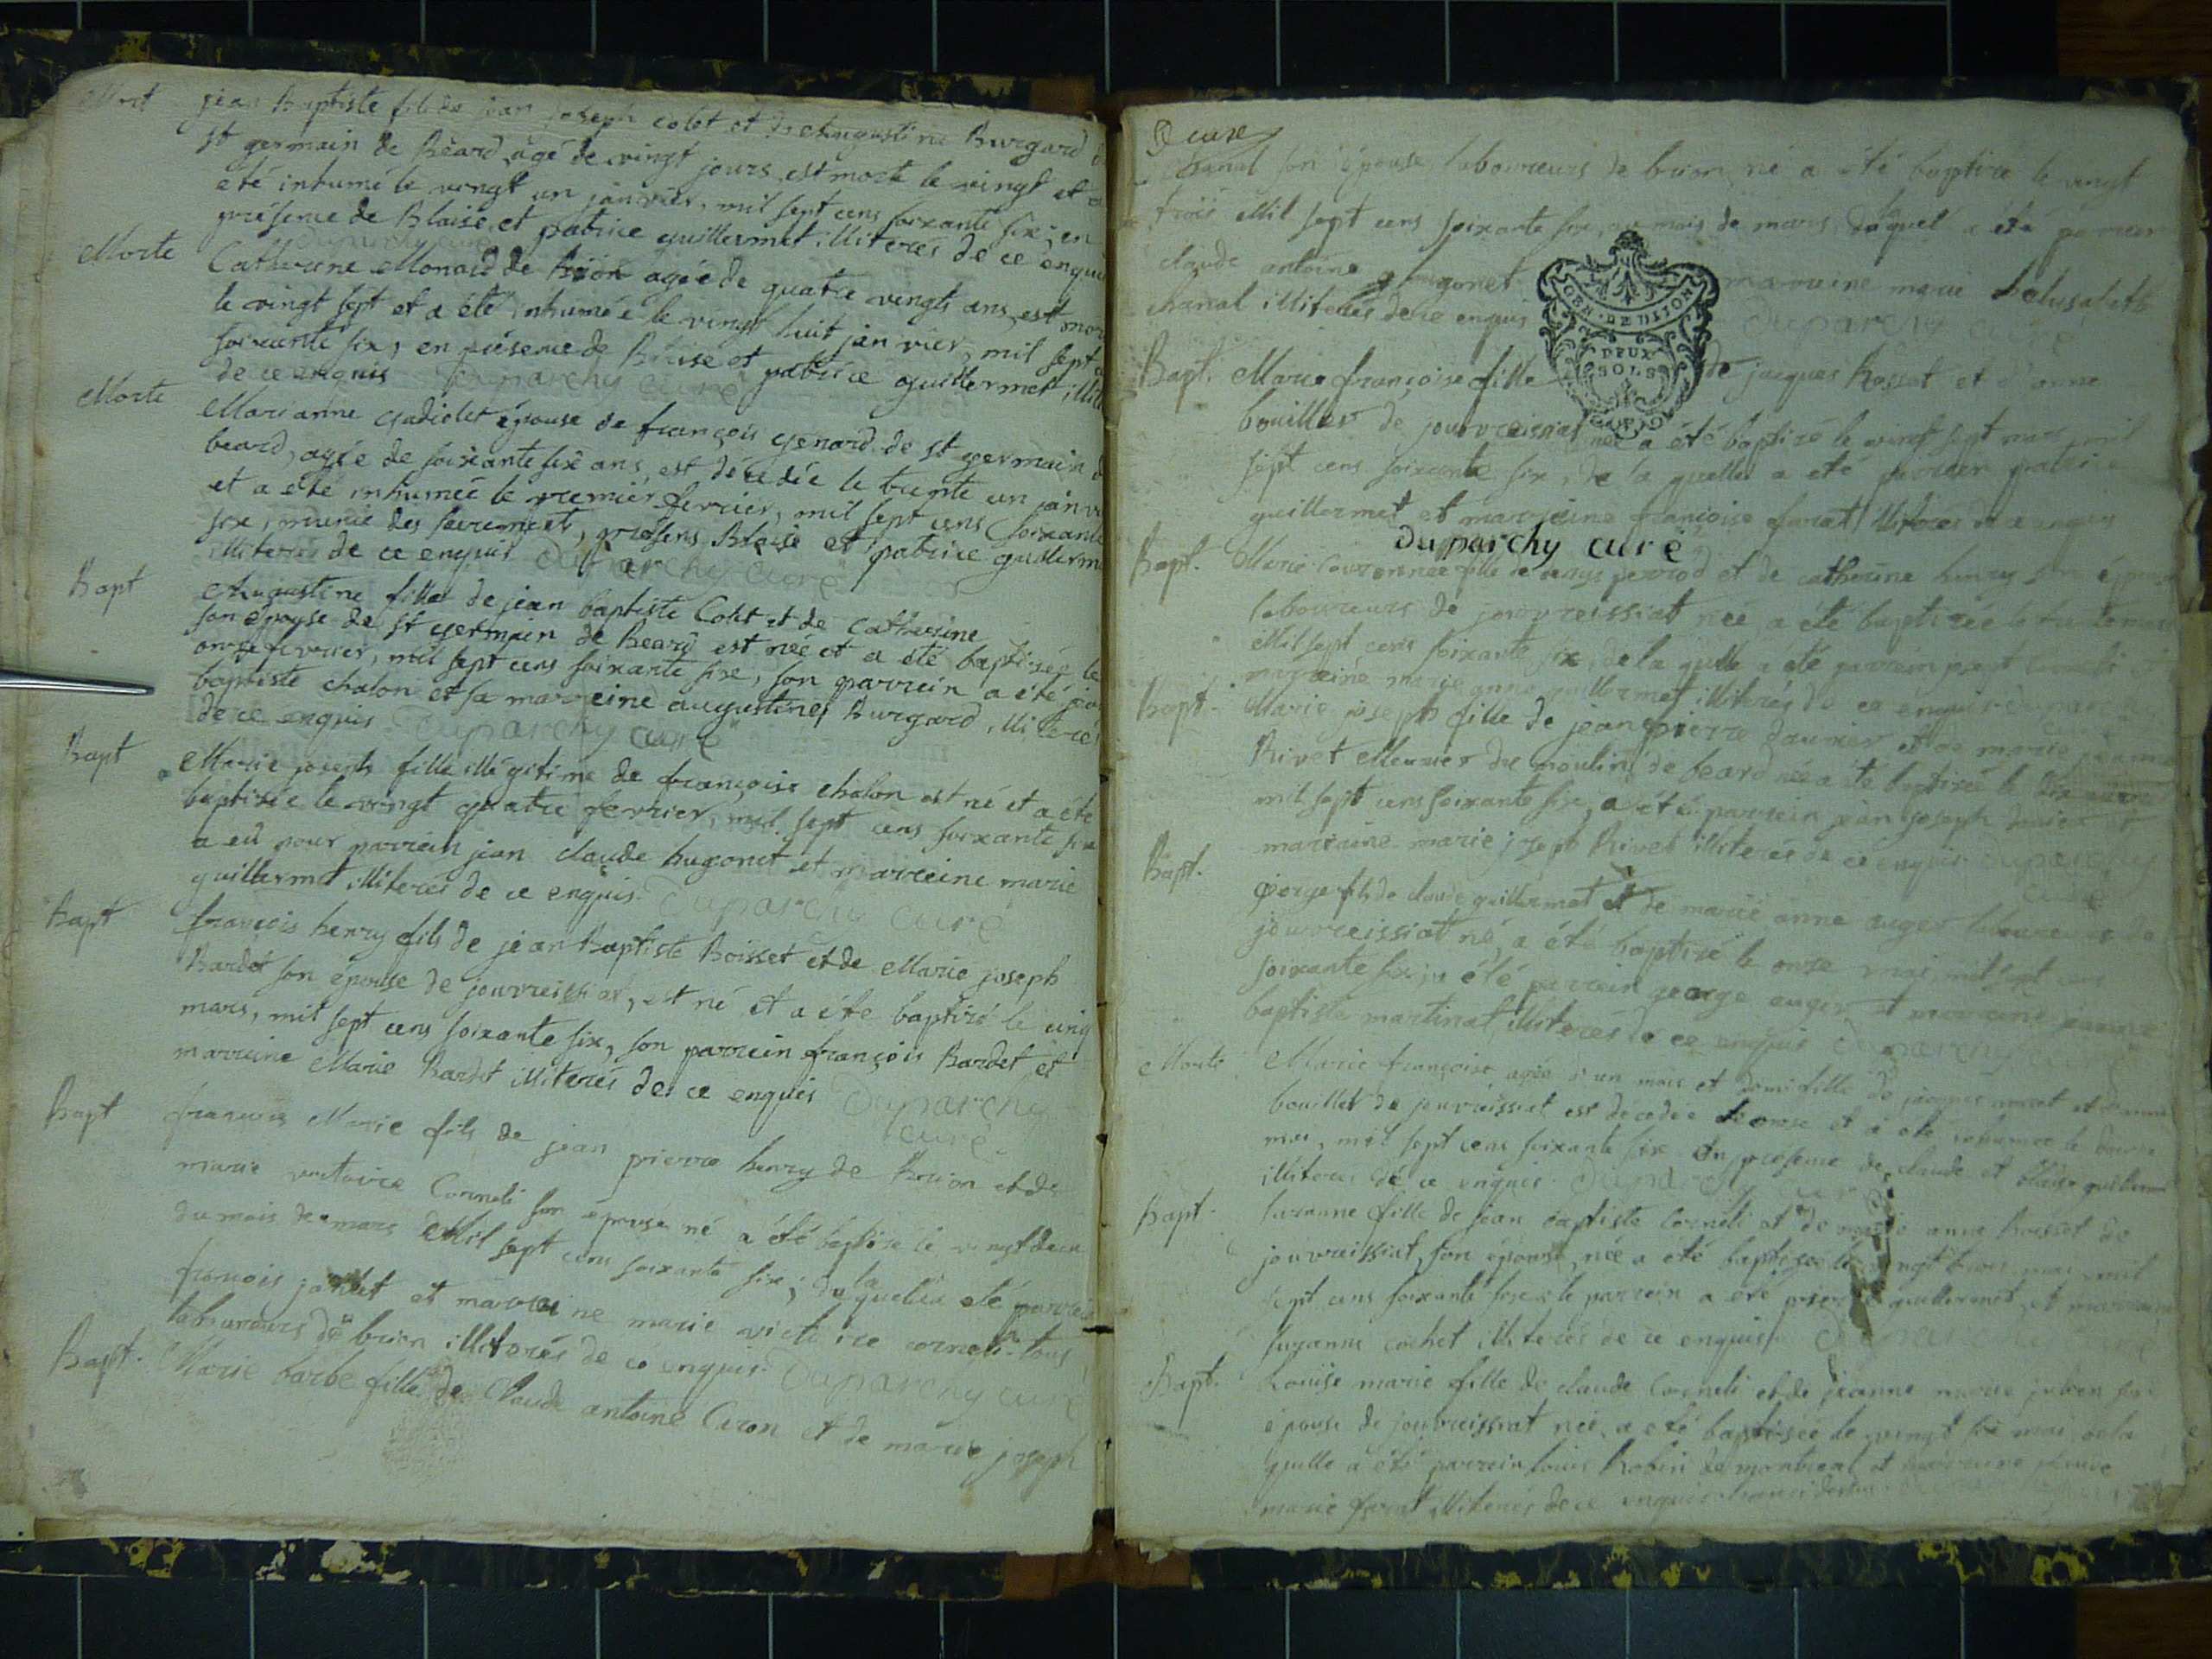 Mort jean Baptiste fils de jean joseph colet et de Augustine Burgard
st germain de Béard, agé de vingt jours, est mort le vingt et
eté inhumé le vingt un janvier, mil sept cens soixante six; en
présence de Blaise et patrice guillermet illiterés de ce enquis
duparchy curé
Morte Catherine Monard de Brion agée de quatre vingts ans, est mor
le vingt sept et a été inhumée le vingt huit janvier, mil sept
soixante six, en présence de Blaise et patrice guillermet illit
de ce enquis duparchy curé
Morte Marianne Gadiolet épouse de françois genard de st germain d
beard, agée de soixante six ans, est décedée le trente un janv
et a été inhumée le premier fevrier, mil sept cens soixante
six, munie des sacremens, presens Blaise et patrice guillerm
illiterés de ce enquis duparchy curé
Bapt Augustine fille de jean baptiste Colet et de Catherine
son épouse de st germain de Beard est née et a été baptisée le
onze fevrier, mil sept cens soixante six, son parrein a été jea
baptiste chalon et sa marreine augustine Burgard illiterés
de ce enquis duparchy curé
Bapt Marie joseph fille illégitime de françoise chalon est né et a été
baptisée le vingt quatre fevrier, mil sept cens soixante six
a eû pour parrein jean claude hugonet et marreine marie
guillermet illiterés de ce enquis duparchy curé
Bapt françois henry fils de jean Baptiste Boisset et de Marie joseph
Bardet son épouse de jouvreissiat, est né et a été baptisé le cinq
mars, mil sept cens soixante six, son parrein françois Bardet et
marreine Marie Bardet illiterés de ce enquis duparchy
curé
Bapt françois Marie fils de jean pierre henry de Brion et de
marie victoire Corneli son épouse né a été baptisé le vingt deux
du mois de mars Mil sept cens soixante six; de la quelle a eté parrein
francois et marreine marie victoire corneli tous
laboureurs de brion illiterés de ce enquis. duparchy curé
Bapt. Marie barbe fille de Claude antoine Caron et de marie joseph
chanal son épouse laboureurs de brion, né a été baptisé le vingt
trois Mil sept cens soixante six, mois de mars, duquel a été parrein
claude antoine hugonet marreine marie
chanal illiterés de ce enquis duparchy
GEN. DE DIJON
DEUX
SOLS
Bapt. Marie françoise fille de jacques Rosset et d'anne
bouillet de jouvreissiat née a été baptisé le vingt sept mars mil
sept cens soixante six, de la quelle a eté parrein patrice
guillermet et marreine françoise furat illiterés de ce enquis
duparchy curé
Bapt. Marie Couronnée fille de denys perrod et de catherine henry son épouse
laboureurs de jouvreissiat née, a été baptisée le trente mars
Mil sept cens soixante six, de la quelle a été parrein joseph Corneli et
marreine marie anne guillermet illiterés de ce enquis duparchy
curé
Bapt. Marie joseph fille de jean pierre daunier et de marie jeanne
Rivet Meunier du moulin de beard née a été baptisée le dix
mil sept cens soixante six, a été parrein jean joseph et
marreine marie joseph Rivet illiterés de ce enquis duparchy
curé
Bapt. George fils de claude guillermet et de marie anne auger laboureurs de
jouvreissiat né, a été baptisé le onze mai, mil sept cens
soixante six, a été parrein george auger et marreine jeanne
baptiste martinat illiterés de ce enquis duparchy curé
Morte Marie françoise agée d'un mois et demi fille de jacques rosset et d'anne
bouillet de jouvreissiat est décedée le onze et a eté inhumée le douze
mai, mil sept cens soixante six en presence de claude et Blaise guillermet
illiterés de ce enquis duparchy curé
Bapt. Suzanne fille de jean baptiste Corneli et de marie anne boisset de
jouvreissiat, son épouse, née a eté baptisée le vingt trois mai mil
sept cens soixante six, le parrein a eté guillermet, et marreine
suzanne cochet illiterés de ce enquis
Bapt. Louise marie fille de claude Corneli et de jeanne marie julien son
épouse de jouvreissiat née, a eté baptisée le vingt six mai, de la
quelle a été parrein louis Robin de montreal et marreine
marie illiterés de ce enquis